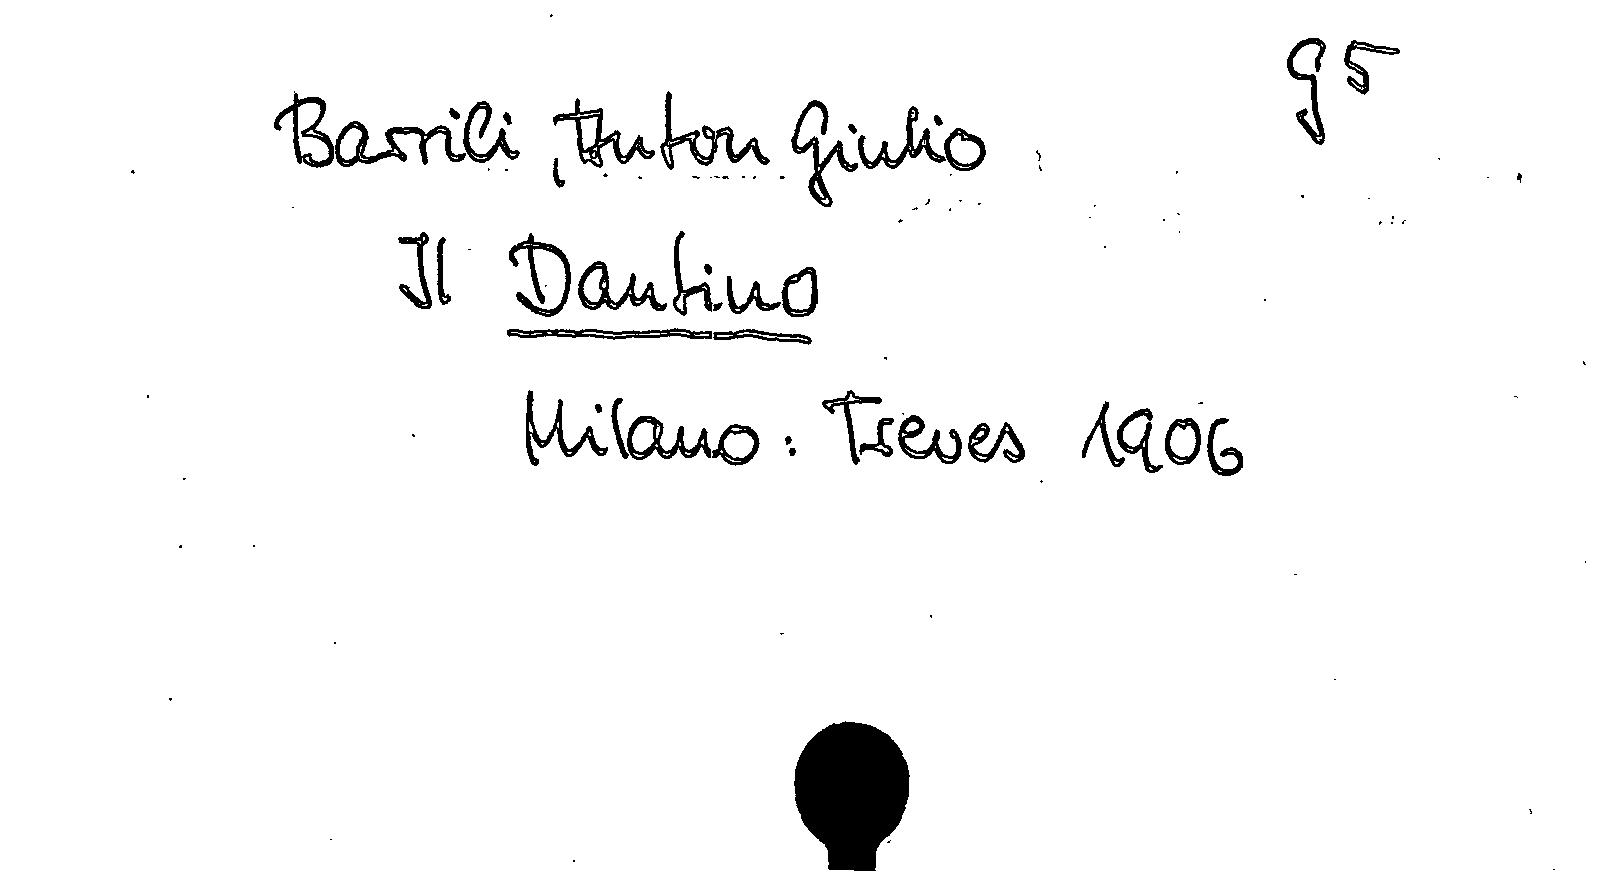 g5
Barrili, Anton Giulio
Il Dantino
Milano: Treves 1906